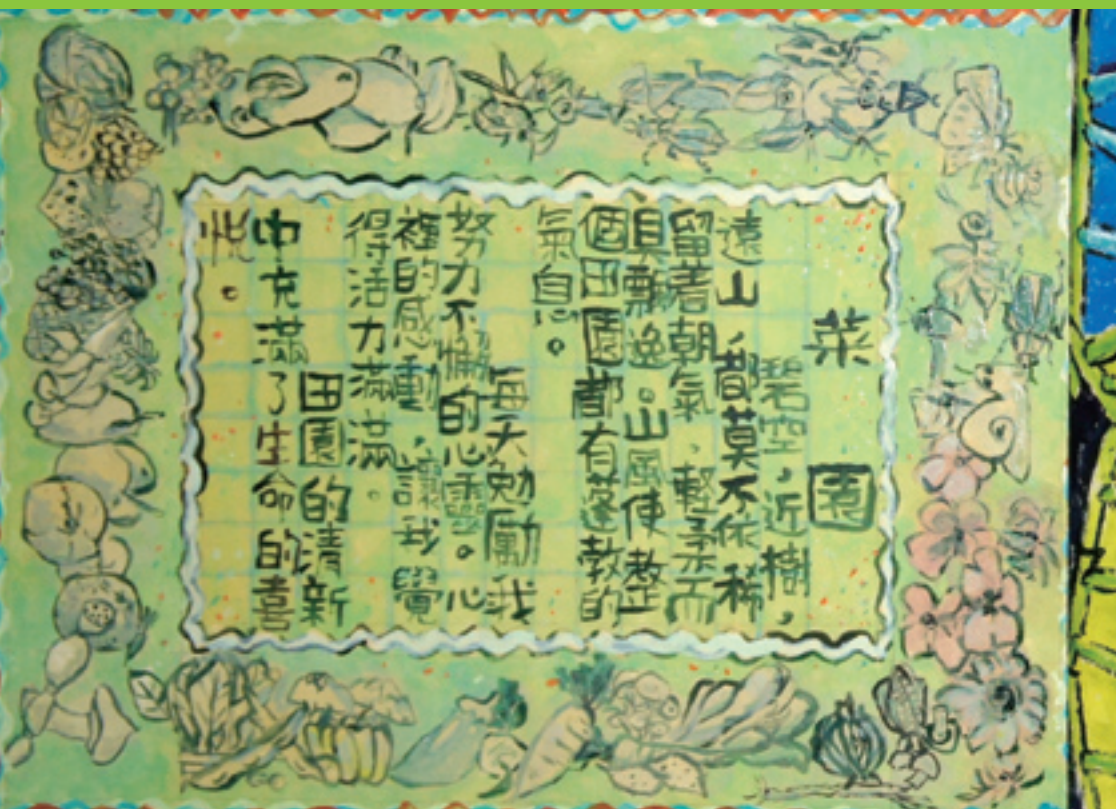 菜園
碧空，近樹，
遠山，都莫不依稀
留著朝氣，輕柔而
且飄逸。山風使整
個田園都有蓬勃的
氣息。
每天勉勵我
努力不懈的心靈。心
裡的感動，讓我覺
得活力滿滿。
田園的清新
中充滿了生命的喜
悅。